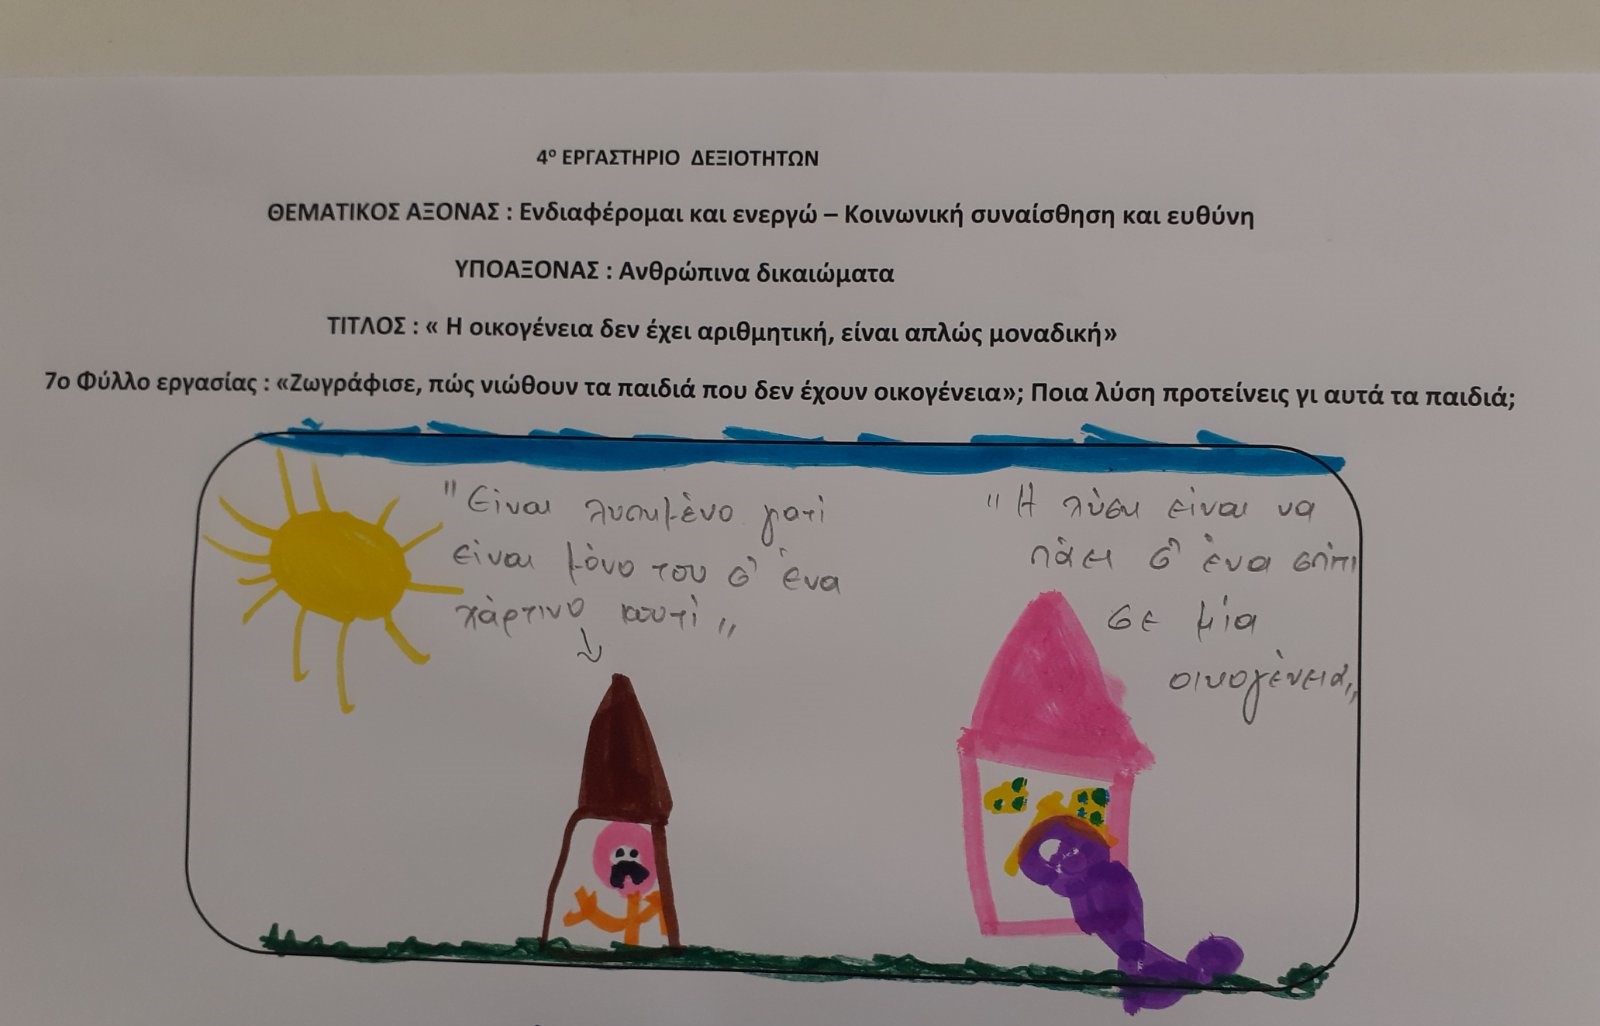 4ο ΕΡΓΑΣΤΗΡΙΟ ΔΕΞΙΟΤΗΤΩΝ
ΘΕΜΑΤΙΚΟΣ ΑΞΟΝΑΣ : Ενδιαφέρομαι και ενεργώ – Κοινωνική συναίσθηση και ευθύνη
ΥΠΟΑΞΟΝΑΣ : Ανθρώπινα δικαιώματα
ΤΙΤΛΟΣ : « Η οικογένεια δεν έχει αριθμητική, είναι απλώς μοναδική»
7ο Φύλλο εργασίας : «Ζωγράφισε, πώς νιώθουν τα παιδιά που δεν έχουν οικογένεια»; Ποια λύση προτείνεις γι αυτά τα παιδιά;
"Είναι λυπημένο γιατί
είναι μόνο του σ' ένα
χάρτινο κουτί„
"Η λύση είναι να
πάει σ' ένα σπίτι
σε μία
οικογένεια„